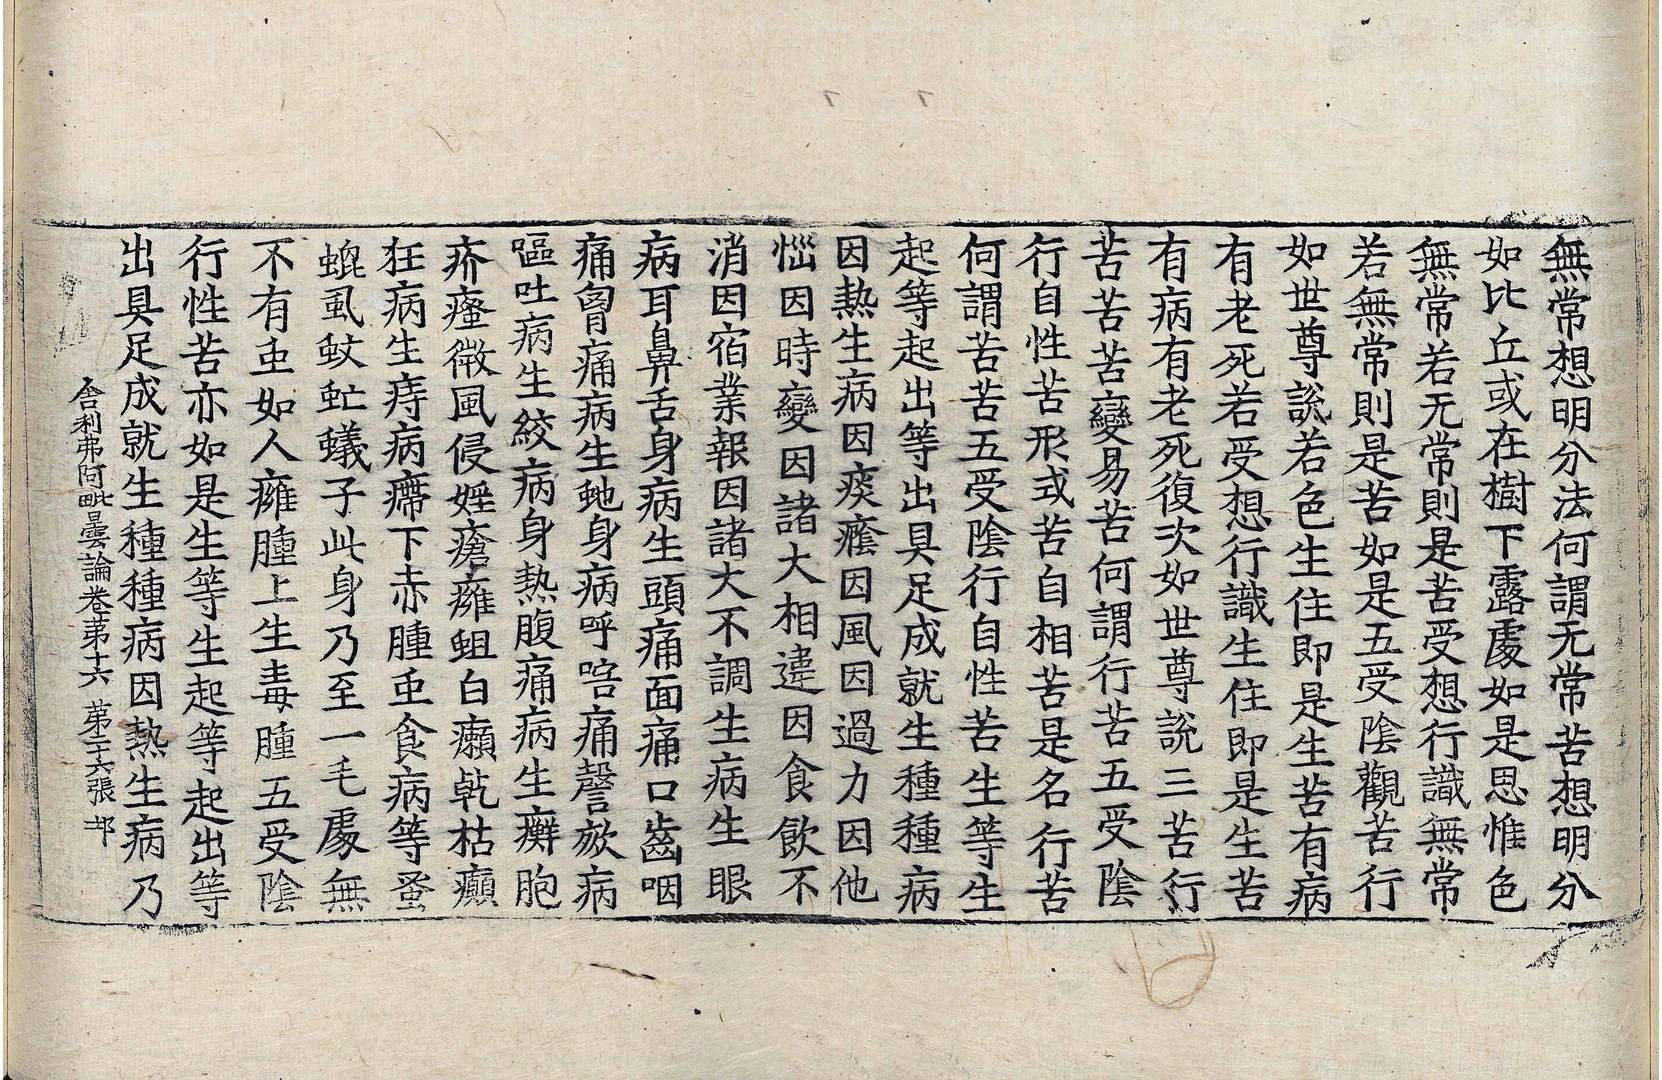 無常想明分法何謂无常苦想明分
如比丘或在樹下露處如是思惟色
無常若无常則是苦受想行識無常
若無常則是苦如是五受陰觀苦行
如世尊説若色生住即是生苦有病
有老死若受想行識生住即是生苦
有病有老死復次如世尊説三苦行
苦苦苦變易苦何謂行苦五受陰
行自性苦形或苦自相苦是名行苦
何謂苦苦五受陰行自性苦生等生
起等起出等出具足成就生種種病
因熱生病因痰癊因風因過力因他
惱因時變因諸大相違因食飲不
消因宿業報因諸大不調生病生眼
病耳鼻舌身病生頭痛面痛口齒咽
痛胷痛病生虵身病呼㖧痛謦欬病
嘔吐病生絞病身熱腹痛病生癬胞
疥瘙微風侵婬瘡癰蛆白癩乹枯癲
狂病生痔病㿃下赤腫䖝食病等蚤
蜫虱蚊虻蟻子此身乃至一毛處無
不有䖝如人癰腫上生毒腫五受陰
行性苦亦如是生等生起等起出等
出具足成就生種種病因熱生病乃
舍利弗阿毗曇論卷苐十六 苐二十六張 㔻